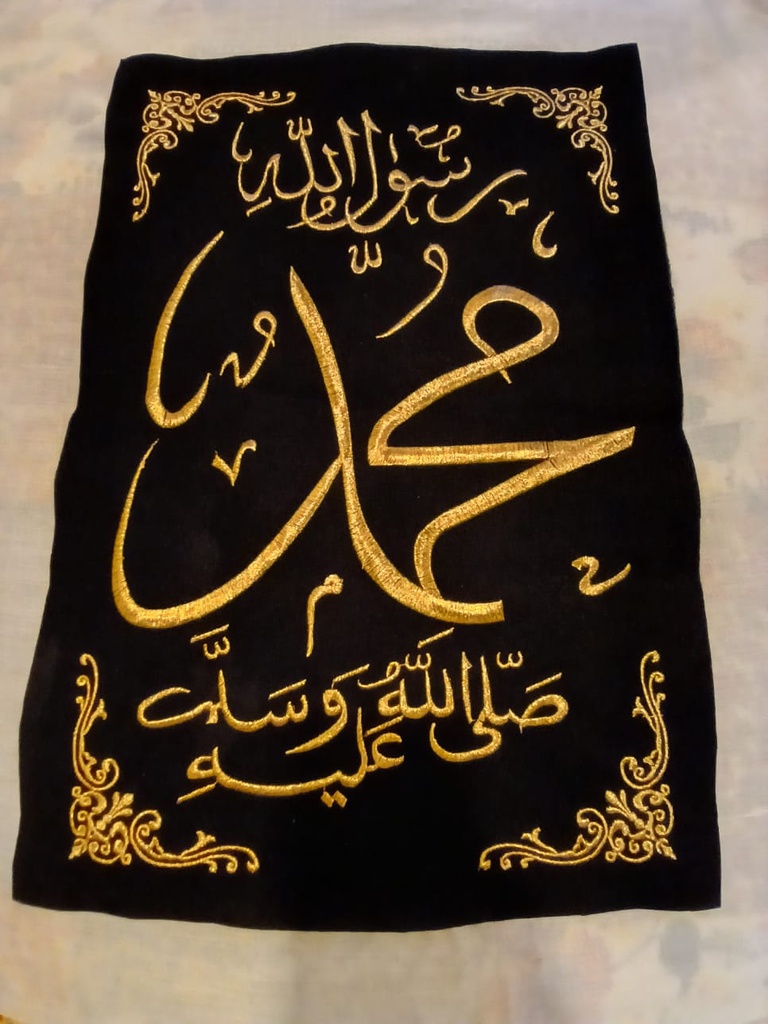 رسول الله
محمد
صلى الله عليه وسلم